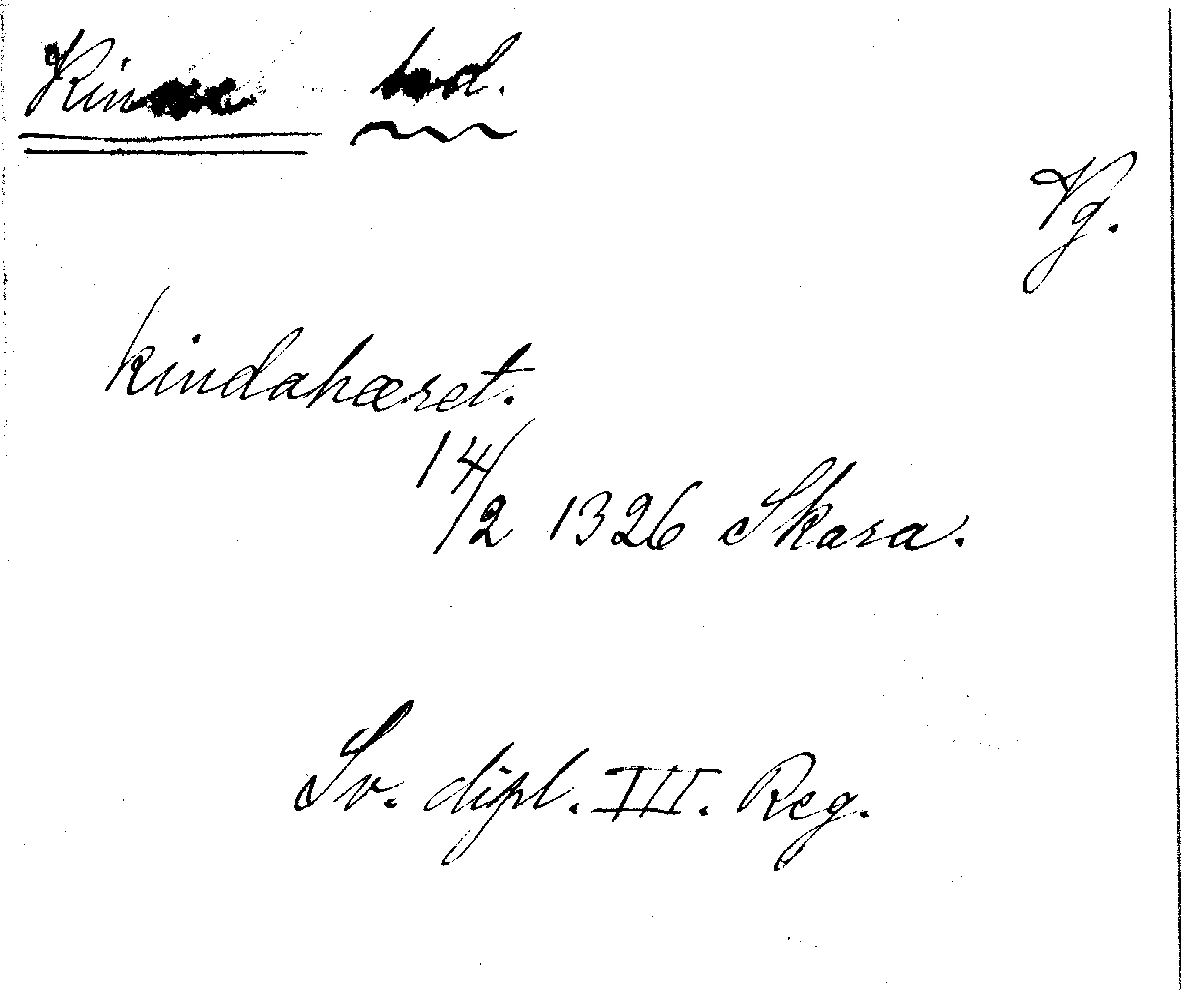 Kinne hd.
Vg.
kindahæret.
14/2 1326 Skara.
Sv. dipl. III. Reg.